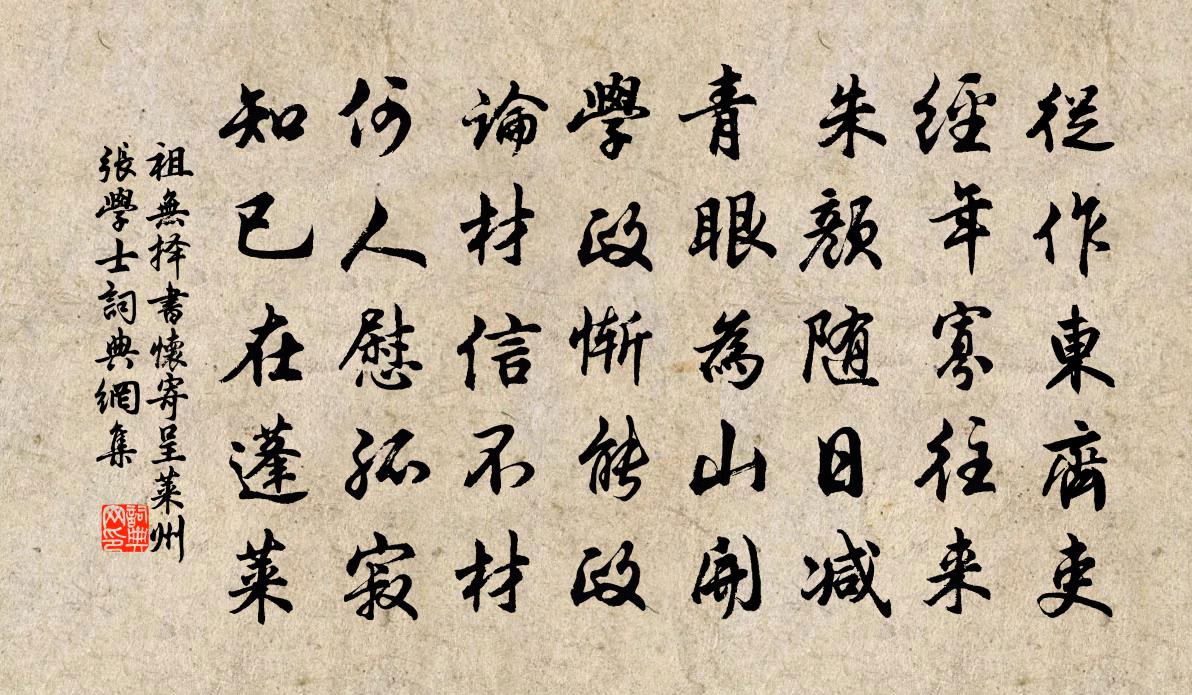 從作東齊吏
經年寡往来
朱顏随日减
青眼為山開
學政慚能政
論材信不材
何人慰孤寂
知已在蓬萊
祖無择書懷寄呈萊州
張學士詞典網集
詞典
网印